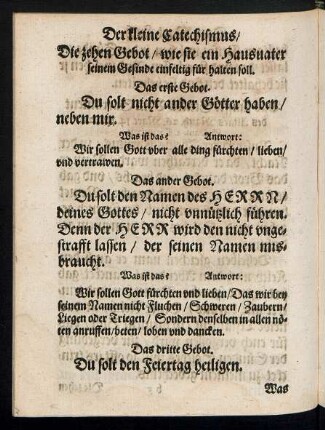 Der kleine Catechismus/
Die zehen Gebot/ wie sie ein Hausuater
seinem Gesinde einfeltig für halten soll.
Das erste Gebot.
Du solt nicht ander Götter haben/
neben mir.
Was ist das? Antwort:
Wir sollen Gott vber alle ding fürchten/ lieben/
vnd vertrawen.
Das ander Gebot.
Du solt den Namen des HERRN/
deines Gottes/ nicht vnnützlich führen.
Denn der HERR wird den nicht vnge-
strafft lassen/ der seinen Namen mis-
braucht.
Was ist das? Antwort:
Wir sollen Gott fürchten vnd lieben/ Das wir bey
seinem Namen nicht Fluchen/ Schweren/ Zaubern/
Liegen oder Triegen/ Sondern denselben in allen nö-
ten anruffen/ beten/ loben vnd dancken.
Das dritte Gebot.
Du solt den Feiertag heiligen.
Was